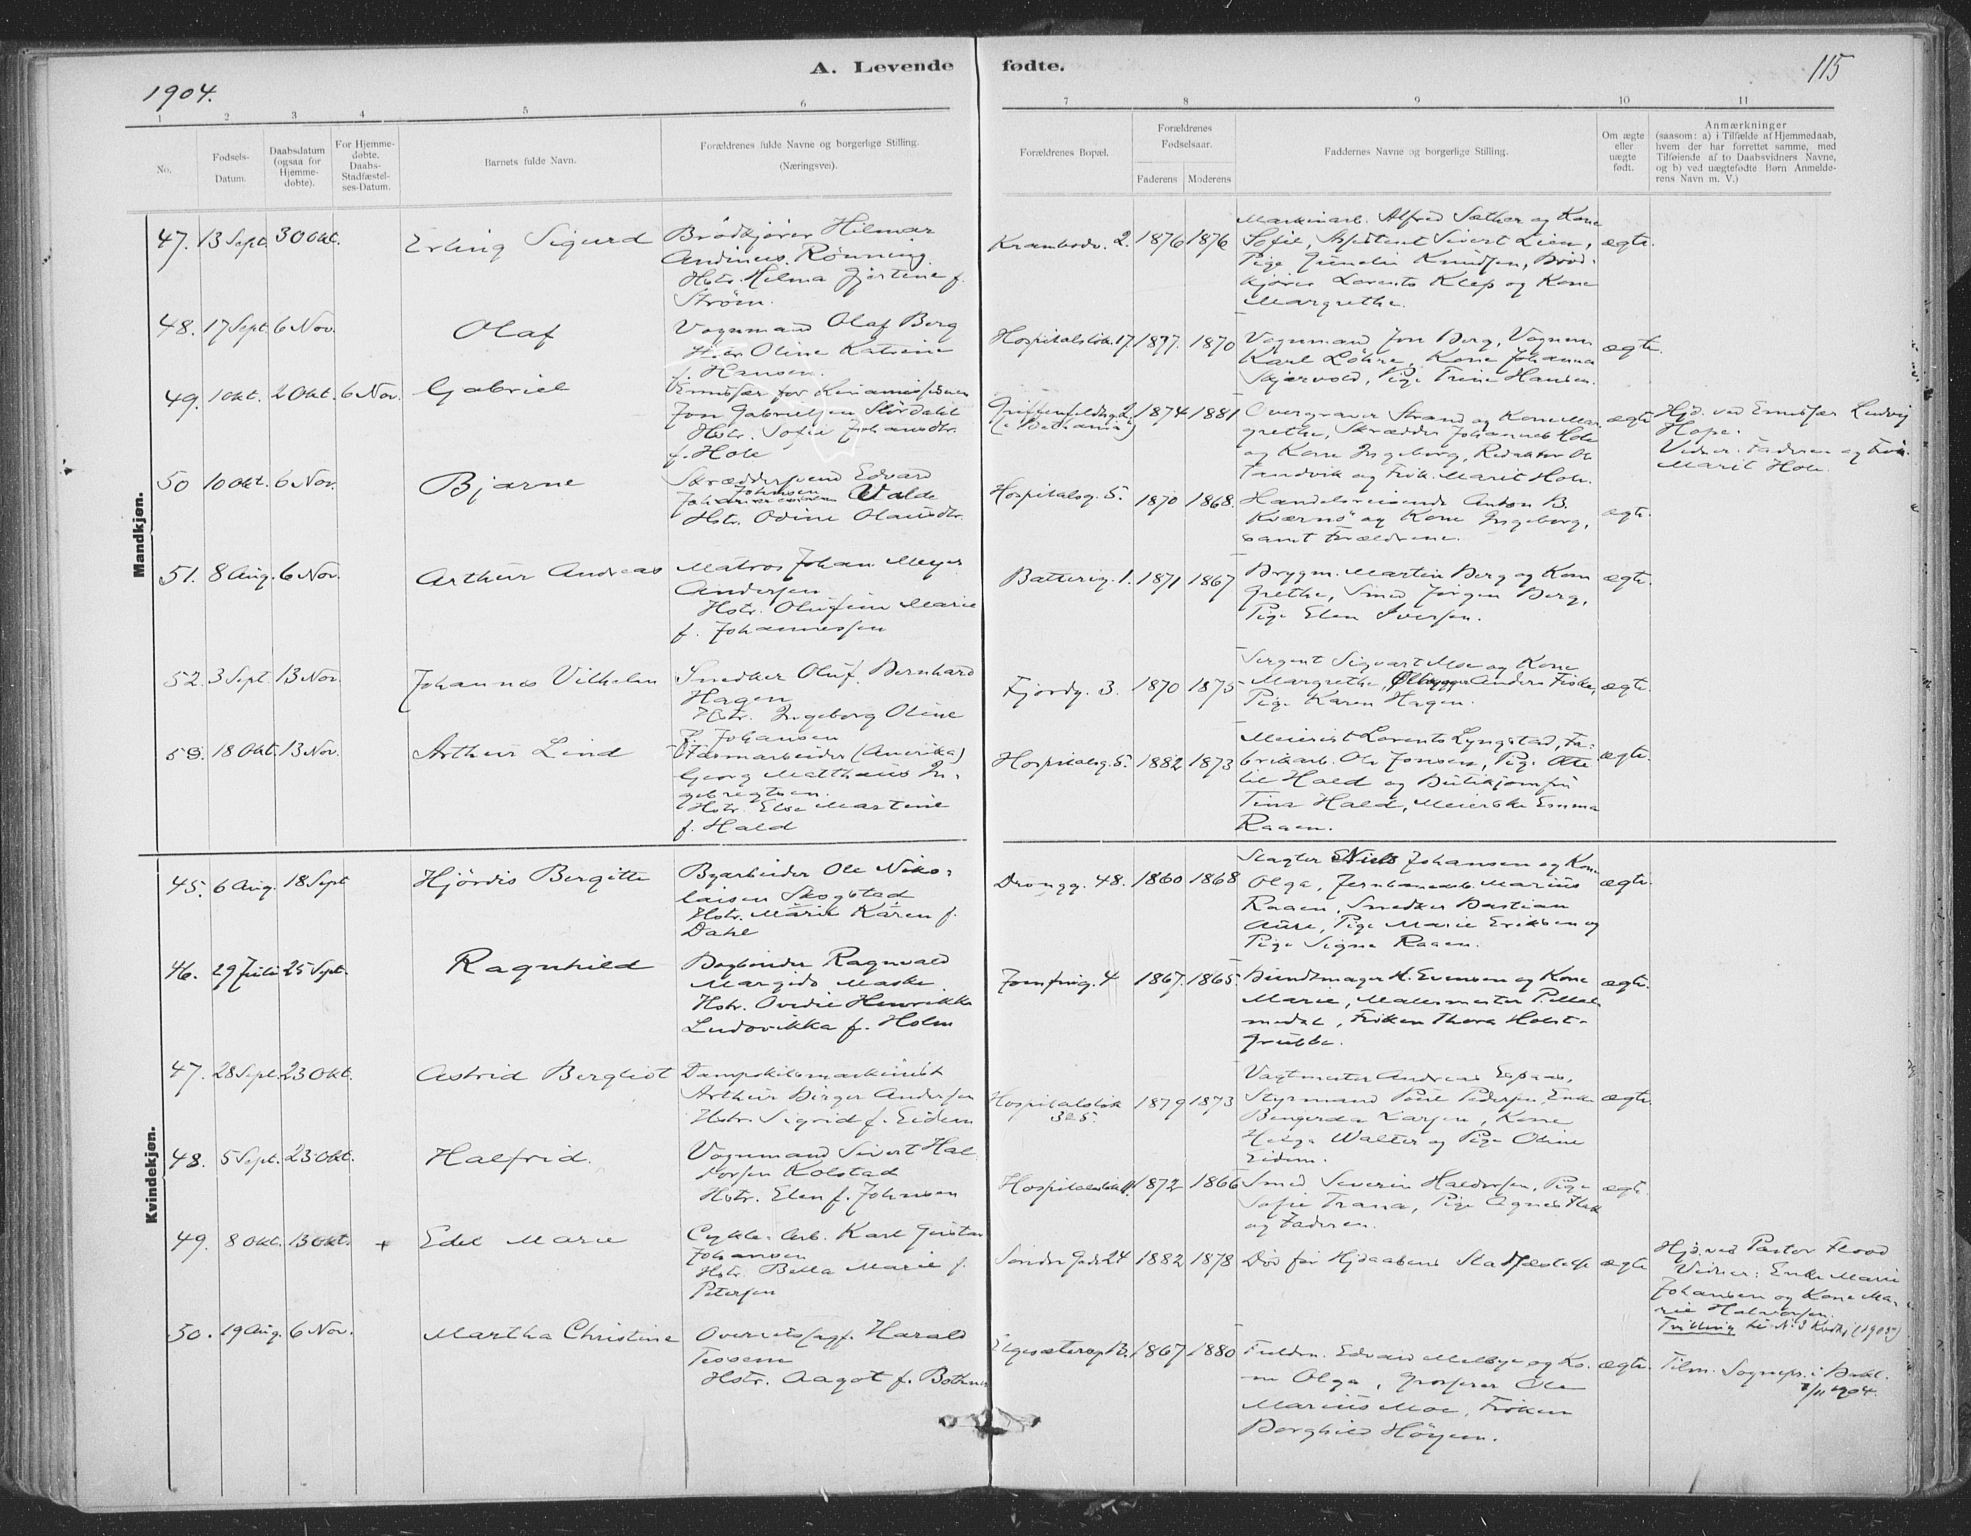 1904.
A. Levende fødte.
115
1 2 3 4 5 6 7 8 9 10 11
No.
Fødsels-
Datum.
Daabsdatum
(ogsaa for
Hjemme-
døbte).
For Hjemme-
døbte.
Daabs-
Stadfæstel-
ses-Datum.
Barnets fulde Navn.
Forældrenes fulde Navne og borgerlige Stilling.
(Næringsvei).
Forældrenes Bopæl.
Forældrenes
Fødselsaar.
Faderens Moderens
Faddernes Navne og borgerlige Stilling.
Om ægte
eller
uægte
født.
Anmærkninger
(saasom: a) i Tilfælde af Hjemmedaab,
hvem der har forrettet samme, med
Tilføiende af to Daabsvidners Navne,
og b) ved uægtefødte Børn Anmelde-
rens Navn m. V.)
Mandkjøn.
47. 13 Sept. 30 Okt. Erling Sigurd
Brødkjører Hilmar
Andineus Rönning.
Hstr. Helma Hjertine f.
Strøm.
Krambodv. 2. 1876 1876
Maskinarb. Alfred Sæther og Kone
Sofie, Assistent Sivert Lien,
Pige Gunelie Knudsen, Brød-
kjører Lorents Klep og Kone
Margrethe.
ægte.
48. 17 Sept. 6 Nov. Olaf
Vognmand Olaf Berg
Hstr. Oline Katrine
f. Hansen.
Hospitalsløk. 17. 1877. 1870
Vognmand Jon Berg, Vognm.
Karl Löhre, Kone Johanna
Skjervold, Pige Trine Hansen.
ægte.
49. 1 Okt. 2 Okt. 6 Nov. Gabriel
Emissær for Kinamissionen
Jon Gabrielsen Stördahl
Hstr. Sofie Johansdtr.
f. Hole
Griffenfeldtsg. 2.
(Bethania)
1874 1881
Overgraver Strand og Kone Mar-
grethe, Skrædder Johannes Hole
og Kone Ingeborg, Redaktør O.
Tandvik og Frk. Marit Hole.
ægte
Hjd. ved Emissær Ludvig
Hope.
Vidner: Faderen og Frk.
Marit Hole.
50 10 Okt. 6 Nov. Bjarne
Skræddersvend Edvard
Johnsen Valde
Hstr. Odine Olausdtr.
Hospitalsg. 5. 1870 1868.
Handelsreisende Anton B.
Kværnö og Kone Ingeborg,
samt Forældrene.
ægte.
51. 8 Aug. 6 Nov. Arthur Andreas
Matros Johan Meyer
Andersen
Hstr. Olufine Marie
f. Johannessen
Batterig. 1. 1871 1867
Brygm. Martin Berg og Kone
Grethe, Smed Jørgen Berg,
Pige Elen Iversen.
ægte.
52. 3 Sept. 13 Nov. Johannes Vilhelm
Snedker Oluf Bernhard
Hagen
Hstr. Ingeborg Oline
f. Johansen
Fjordg. 3. 1870 1875
Sergent Sigvart Moe og Kone
Margrethe, Anders Fiske,
Pige Karen Hagen.
ægte.
53. 18 Okt. 13 Nov. Arthur Lind
Farmarbeider (Amerika)
Georg Matthæus In-
gebregtsen.
Hstr. Else Martine
f. Hald
Hospitalsg. 5. 1882 1873
Meierist Lorents Lyngstad, Fa-
brikarb. Ole Jonsen, Pige
Hald og Butikjomfru
Tina Hald, Meierske Emma
Raaen.
ægte.
Kvindekjøn.
45. 6 Aug. 18 Sept Hjördis Bergitte
Byarbeider Ole Niko-
laisen Skogstad
Hstr. Marie Karen f.
Dahl
Drongg. 48. 1860 1868
Slagter Niels Johansen og Kone
Olga, Jernbanearb. Marius
Raaen, Snedker Bastian
Aune, Pige Marie Eriksen og
Pige Signe Raaen.
ægte.
46. 29 Juli 25 Sept. Ragnhild
Bogbinder Ragnvald
Margido Maske.
Hstr. Ovedie Henrikke
Ludovikka f. Holm
Jomfrug. 4 1867. 1865.
Bundtmager H. Evensen og Kone
Marie, Malermester P. Mal-
medal, Frøken Thora Holst-
Grubbe.
ægte.
47. 28 Sept. 23 Okt. Astrid Bergliot
Dampskibsmaskinist
Arthur Birger Andersen
Hstr. Sigrid f. Eidem
Hospitalsløk
1879 1873
Vagtmester Andreas Espaas,
Styrmand Poul Pedersen, Enke
Bengerda Larsen, Kone
Helga Walter og Pige Oline
Eidem.
ægte.
48. 5 Sept. 23 Okt. Halfrid.
Vognmand Sivert Hal-
dorsen Kolstad
Hstr. Elen f. Johnsen
1872 1866
Smed Severin Haldorsen, Pige
Sofie Trana, Pige Agnes
og Faderen.
ægte.
49. 8 Okt. 13 Okt. + Edel Marie
Cykle-Arb. Karl Gustav
Johansen
Hstr. Bella Marie f.
Petersen
Søndre Gade 24 1882 1878
Død før Hjdaabens Stadfæstelse
ægte
Hjd. ved Pastor Flood
Vidner: Enke Marie
Johansen og Kone Ma-
rie Halvorsen.
Tvilling til No. 3 Kvdkj. (1905)
50. 19 Aug. 6 Nov. Martha Christine
Overretssagf. Harald
Tessem
Hstr. Aagot f. Bothner
Elgesæterg. 1867 1880
Fuldm. Edvard Melbye og Ko-
ne Olga, Grosserer Ole
Marius Moe, Frøken
Borghild Höyem.
ægte.
Tilm. Sognepr. i Bakl.
7/11 1904.